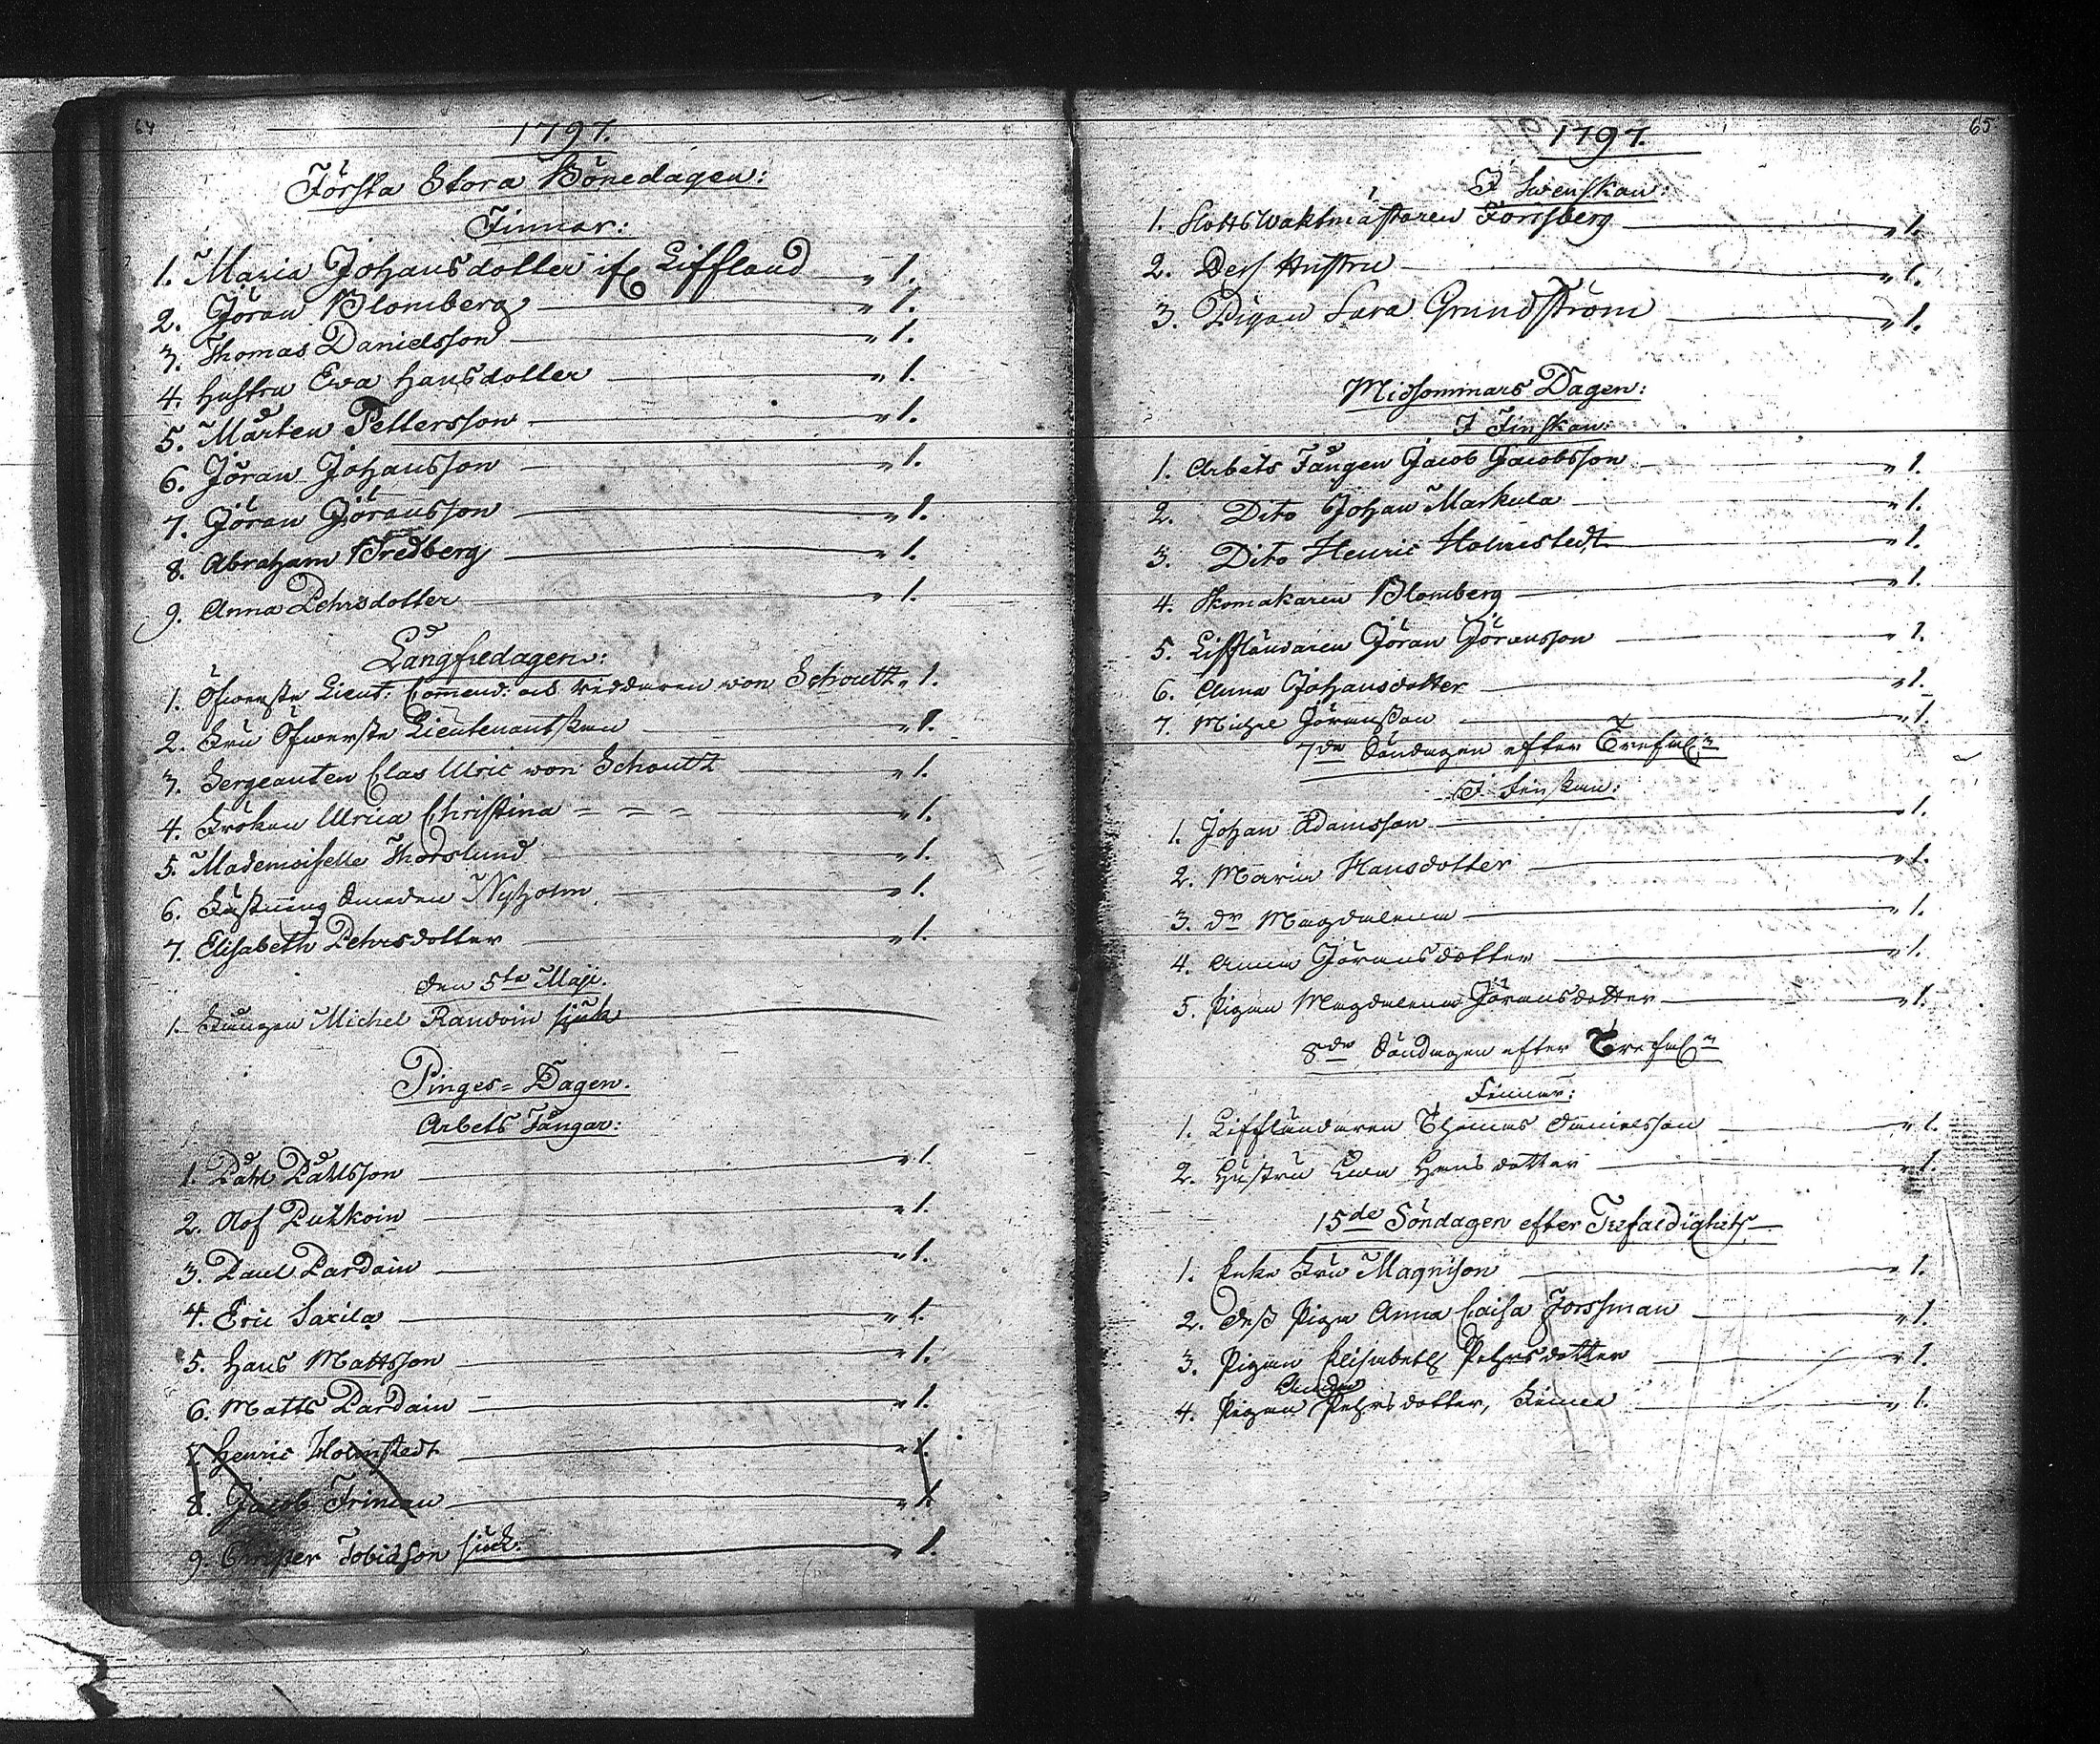 64
1797.
Första Stora Bönedagen:
Finnar:
1. Maria Johansdotter if Liffland „ 1.
2. Jöran Blomberg „ 1.
3. Thomas Danielsson „ 1.
4. Hustru Eva Hansdotter „ 1.
5. Mårten Pettersson „ 1.
6. Jöran Johansson „ 1.
7. Jöran Jöransson „ 1.
8. Abraham Bredberg „ 1.
9. Anna Pehrsdotter „ 1.
Långfredagen:
1. Öfwerste Lieut: Commend: och Riddaren von Schoultz „ 1.
2. Fru Öfwerste Lieutenantskan „ 1.
3. Sergeanten Clas Ulric von Schoultz „ 1.
4. Fröken Ulrica Christina = = = „ 1.
5. Mademoiselle Thorslund „ 1.
6. Fästning Smeden Nyholm „ 1.
7. Elisabeth Pehrsdotter „ 1.
den 5te Maji.
1. Fången Michel Randoin sjuk
Pinges=Dagen.
Arbets Fångar:
1. Påhl Påhlsson „ 1.
2. Olof Putkoin „ 1.
3. Paul Pardain „ 1.
4. Eric Saxila „ 1.
5. Hans Mattsson „ 1.
6. Matts Pardain „ 1.
7. Henric Holmstedt „ 1.
8. Jacob Friman „ 1.
9. Christer Tobiasson siuk. „ 1.
65
1797.
I Swenskan:
1. Slotts Waktmästaren Forssberg „ 1.
2. Dess Hustru „ 1.
3. Pigan Sara Grundström „ 1.
Midsommars Dagen:
I Finskan:
1. Arbets Fången Jacob Jacobsson „ 1.
2. Dito Johan Markula „ 1.
3. Dito Henric Holmstedt „ 1.
4. Skomakaren Blomberg „ 1.
5. Lifländaren Jöran Jöransson „ 1.
6. Anna Johansdotter „ 1.
7. Michel Jöransson „ 1.
7de Söndagen efter Trefal:n
I Finskan:
1. Johan Adamsson „ 1.
2. Maria Hansdotter „ 1.
3. do Magdalena „ 1.
4. Anna Jöransdotter „ 1.
5. Pigan Magdalena Jöransdotter „ 1.
8de Söndagen efter Trefal:n
Finnar:
1. Liffländaren Thomas Danielsson „ 1.
2. Hustru Ewa Hansdotter „ 1.
15de Söndagen efter Trefaldighets
1. Enke Fru Magnison „ 1.
2. dess Piga Anna Caisa Forssman „ 1.
3. Pigan Elisabeth Pehrsdotter „ 1.
4. Pigan Anna Pehrsdotter, Finne „ 1.